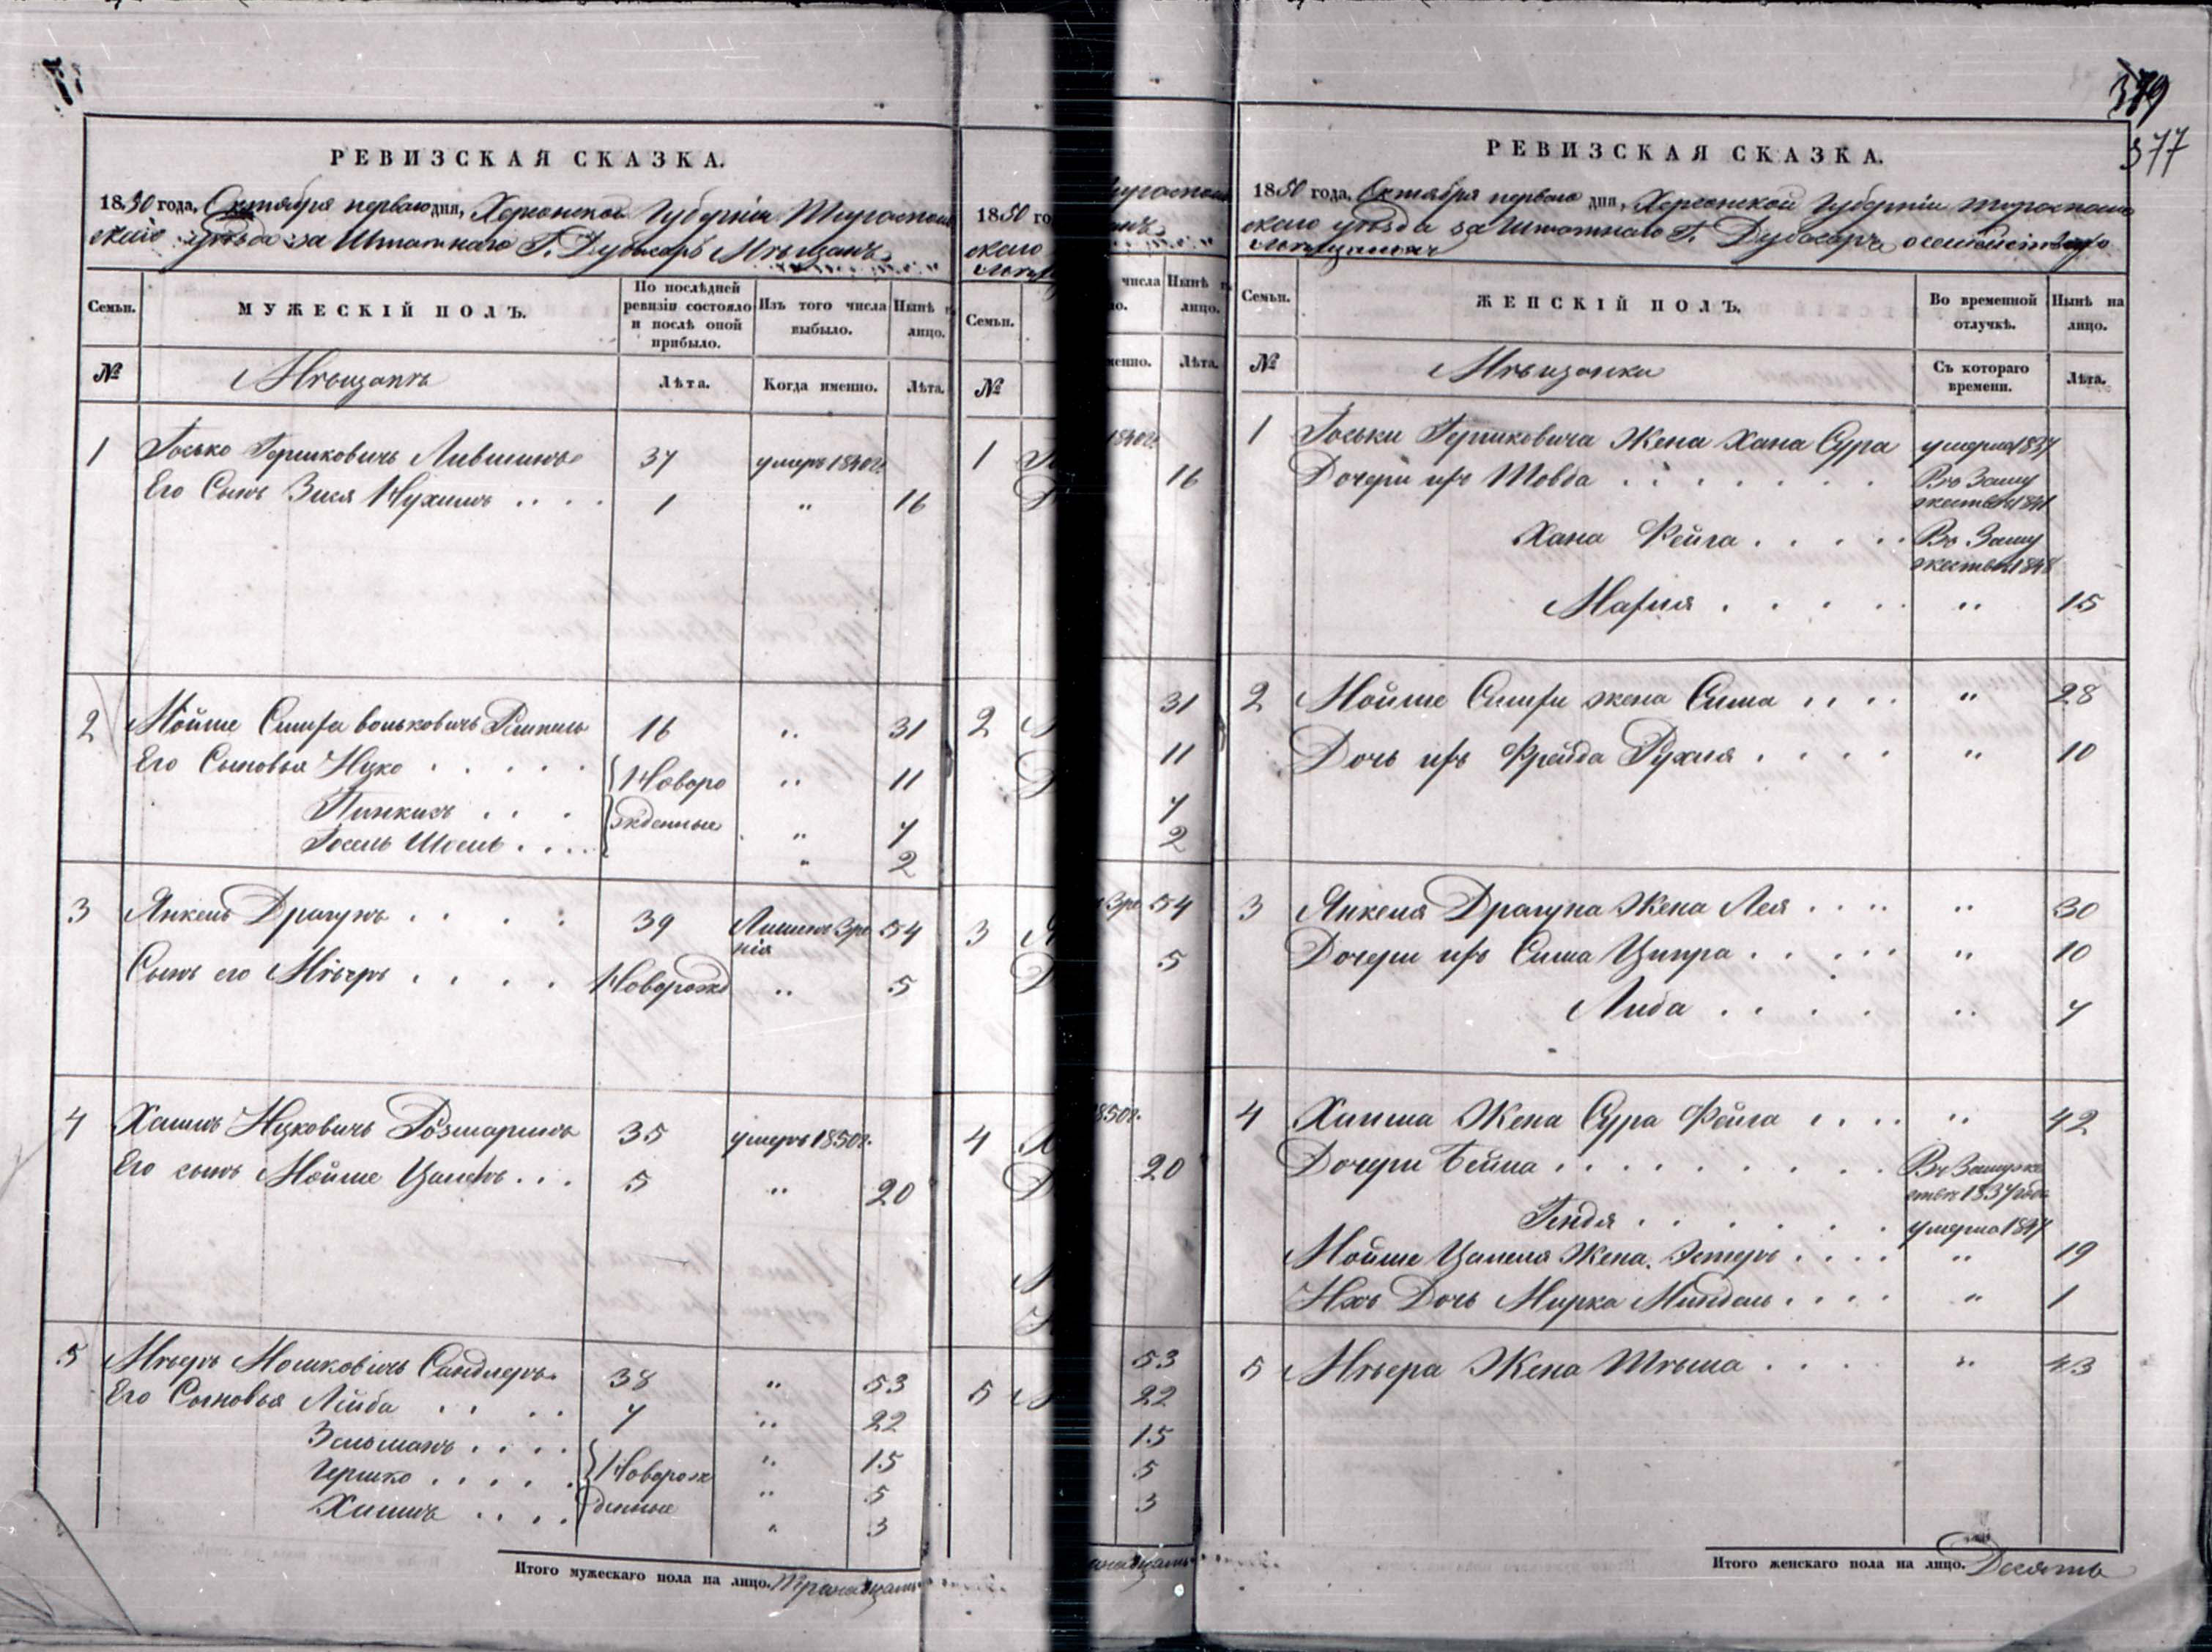 РЕВИЗСКАЯ СКАЗКА.
1850 года, Октября перваго дня, Херсонской Губерніи Тирасполь
скаго уѣзда за Штатнаго Г. Дубосаръ Мѣщанъ
Семьи.
МУЖЕСКІЙ ПОЛЪ.
По послѣдней
ревизіи состояло
и послѣ оной
прибыло.
Изъ того числа
выбыло.
Нынѣ н
лицо.
№
Мѣщанъ
Лѣта.
Когда именно.
Лѣта.
1 Іосько Гершковичь 37 умеръ 1840г.
Его Сынъ Зися Нухимъ . . . . 1 " 16
2 Мойше Сапира вольковичь 16 " 31
Его Сыновья Ицко . . . . . Новоро " 11
Пинкисъ . . . жденные " 7
Іосель . . . . " 2
3 Янкель Драгунъ . . . . 39 Лишенъ Зре 54
нія
Сынъ его Мѣеръ . . . . Новорожд " 5
4 Хаимъ Ицковичь Розмаринъ 35 умеръ 1850г.
Его сынъ Мойше . . . 5 " 20
5 Мѣеръ Мошковичь Сандлеръ 38 " 53
Его Сыновья Лейба . . . . 7 " 22
Зельманъ . . . . Новорож " 15
Гершко . . . . . денные " 5
Хаимъ . . . . " 3
Итого мужескаго пола на лицо. Тринадцать
1850 го
скаго
Семьи.
№
1
2
3
4
5
числа
Нынѣ н
лицо.
менно.
Лѣта.
1840г.
16
31
11
7
2
Зре 54
5
1850г.
20
53
22
15
5
3
379
377
РЕВИЗСКАЯ СКАЗКА.
1850 года, Октября перваго дня, Херсонской Губерніи Тирасполь
скаго уѣзда за Штатнаго Г. Дубосаръ о
Мѣщанахъ
Семьи.
ЖЕНСКІЙ ПОЛЪ.
Во временной
отлучкѣ.
Нынѣ на
лицо.
№
Мѣщанки
Съ котораго
времени.
Лѣта.
1 Іоськи Гершковича Жена Хана Сура умерла 1837
Дочери ихъ Шовба . . . . . . . Въ Заму
жествѣ 1841
Хана Фейга . . . . . Въ Заму
жествѣ 1848
Марія . . . . . " 15
2 Мойше Сапири жена Сима . . . . " 28
Дочь ихъ Фрейда Рухля . . . . " 10
3 Янкеля Драгуна Жена Лея . . . . " 30
Дочери ихъ Сима Ципра . . . . . " 10
Либа . . . . . " 7
4 Хаима Жена Сура Фейга . . . . " 42
Дочери Бейла . . . . . . . . . Въ Замуже
ствѣ 1837 года
Гендя . . . . . . . умерла 1847
Мойше Жена Эстеръ . . . . " 19
Ихъ Дочь Мирка Миндель . . . . " 1
5 Мѣера Жена . . . . " 43
Итого женскаго пола на лицо. Десять